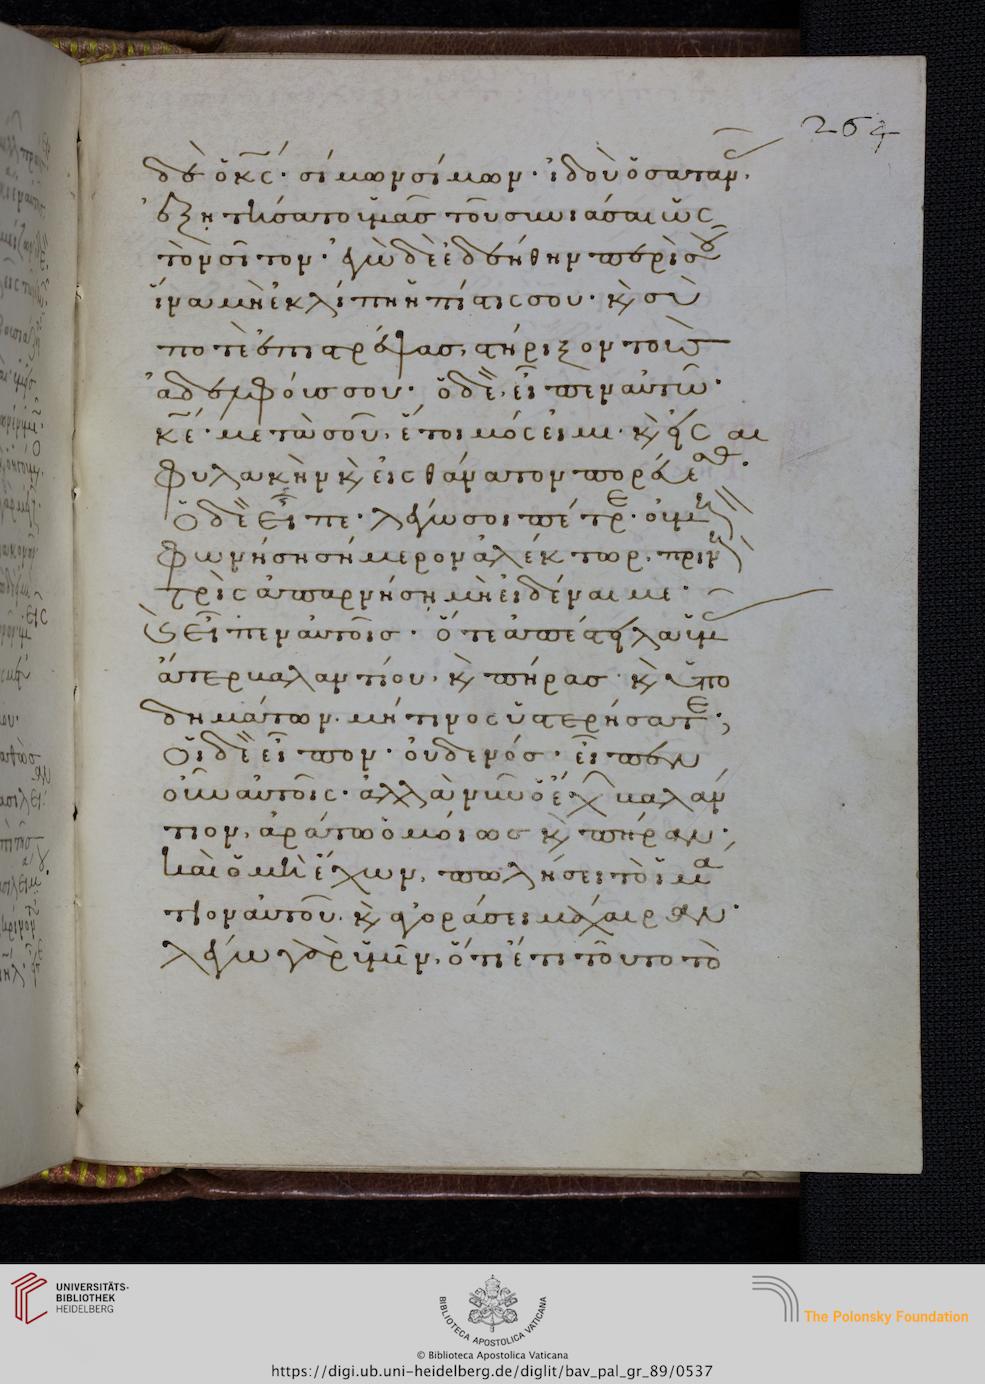 264
δὲ ὁ κ̅ς̅· σίμων σίμων· ἰδοὺ ὁ σατανᾶς
ἐξῃτήσατο ὑμᾶς τοῦ σινιάσαι ὡς
τὸν σῖτον· ἐγὼ δὲ ἐδεήθην περὶ σοῦ
ἵνα μὴ ἐκλίπῃ ἡ πίστις σου· κ̀ σὺ
ποτὲ ἐπιστρέψας, στήριξον τοὺς
ἀδελφούς σου· ὁ δὲ, εἶπεν αὐτῶ·
κ̅ε̅· μετὰ σοῦ, ἕτοιμός εἰμι· κ̀ εἰς
φυλακὴν κ̀ εἰς θάνατον πορεύεσθαι·
Ὁ δὲ εἶπε· λέγω σοι πέτρε· οὐ μὴ
φωνήσῃ σήμερον ἀλέκτωρ, πρὶν ἢ
τρὶς ἀπαρνήσῃ μὴ εἰδέναι με·
κ̀ εἶπεν αὐτοῖς· ὅτε ἀπέστειλα ὑμᾶς
ἄτερ βαλαντίου, κ̀ πήρας κ̀ ὑπο
δημάτων· μή τινος ὑστερήσατε;
Οἱ δὲ εἶπον· οὐδενός· εἶπεν
οὖν αὐτοῖς· ἀλλὰ νῦν ὁ ἔχων βαλάν
τιον, ἀράτω ὁμοίως κ̀ πήραν·
καὶ ὁ μὴ ἔχων, πωλήσει τὸ ἱμά
τιον αὐτοῦ, κ̀ ἀγοράσει μάχαιραν·
λέγω γὰρ ὑμῖν, ὅτι ἔτι τοῦτο τὸ
UNIVERSITÄTS-
BIBLIOTHEK
HEIDELBERG
BIBLIOTECA APOSTOLICA VATICANA
The Polonsky Foundation
© Biblioteca Apostolica Vaticana
https://digi.ub.uni-heidelberg.de/diglit/bav_pal_gr_89/0537